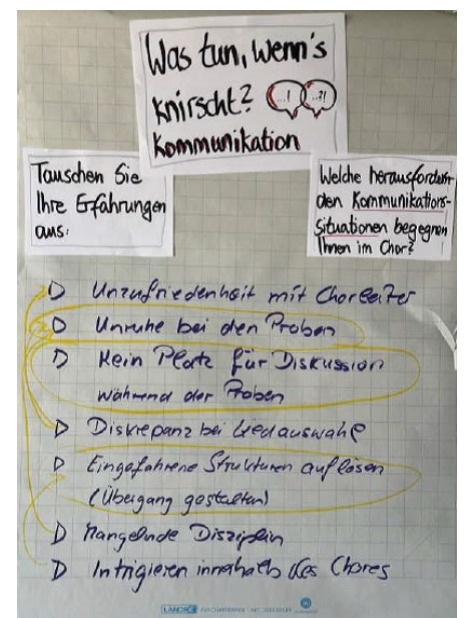 Was tun, wenn's
knirscht? ...! ...?!
Kommunikation
Tauschen Sie
Ihre Erfahrungen
aus:
Welche herausfordern-
den Kommunikations-
Situationen begegnen
Ihnen im Chor?
Unzufriedenheit mit Chorleiter
Unruhe bei den Proben
Kein Platz für Diskussion
während der Proben
Diskrepanz bei Liedauswahl
Eingefahrene Strukturen auflösen
(Übergang gestalten)
Mangelnde Disziplin
Intrigieren innerhalb des Chores